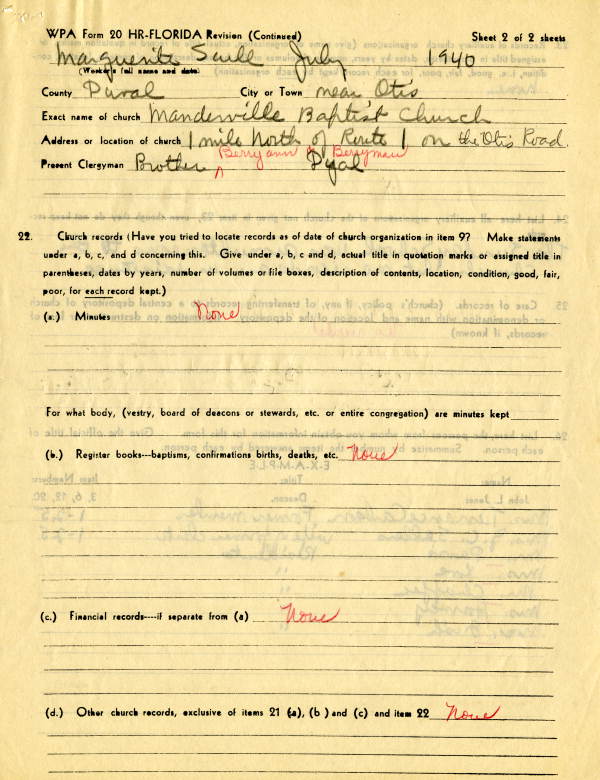 WPA Form 20 HR-FLORIDA Revision (Continued) Sheet 2 of 2 sheets
Marguerite Saull July 1940
(Worker's full name and date)
County Duval City or Town near Otis
Exact name of church Manderville Baptist Church
Address or location of church 1 mile North of Route 1 on the Otis Road.
Berryann or Berryman
Present Clergyman Brother ^ Dyal
22. Church records (Have you tried to locate records as of date of church organization in item 9? Make statements
under a, b, c, and d concerning this. Give under a, b, c and d, actual title in quotation marks or assigned title in
parentheses, dates by years, number of volumes or file boxes, description of contents, location, condition, good, fair,
poor, for each record kept.)
(a.) Minutes None
For what body, (vestry, board of deacons or stewards, etc. or entire congregation) are minutes kept
(b.) Register books---baptisms, confirmations births, deaths, etc. None
(c.) Financial records----if separate from (a) None
(d.) Other church records, exclusive of items 21 (a), (b ) and (c) and item 22 None